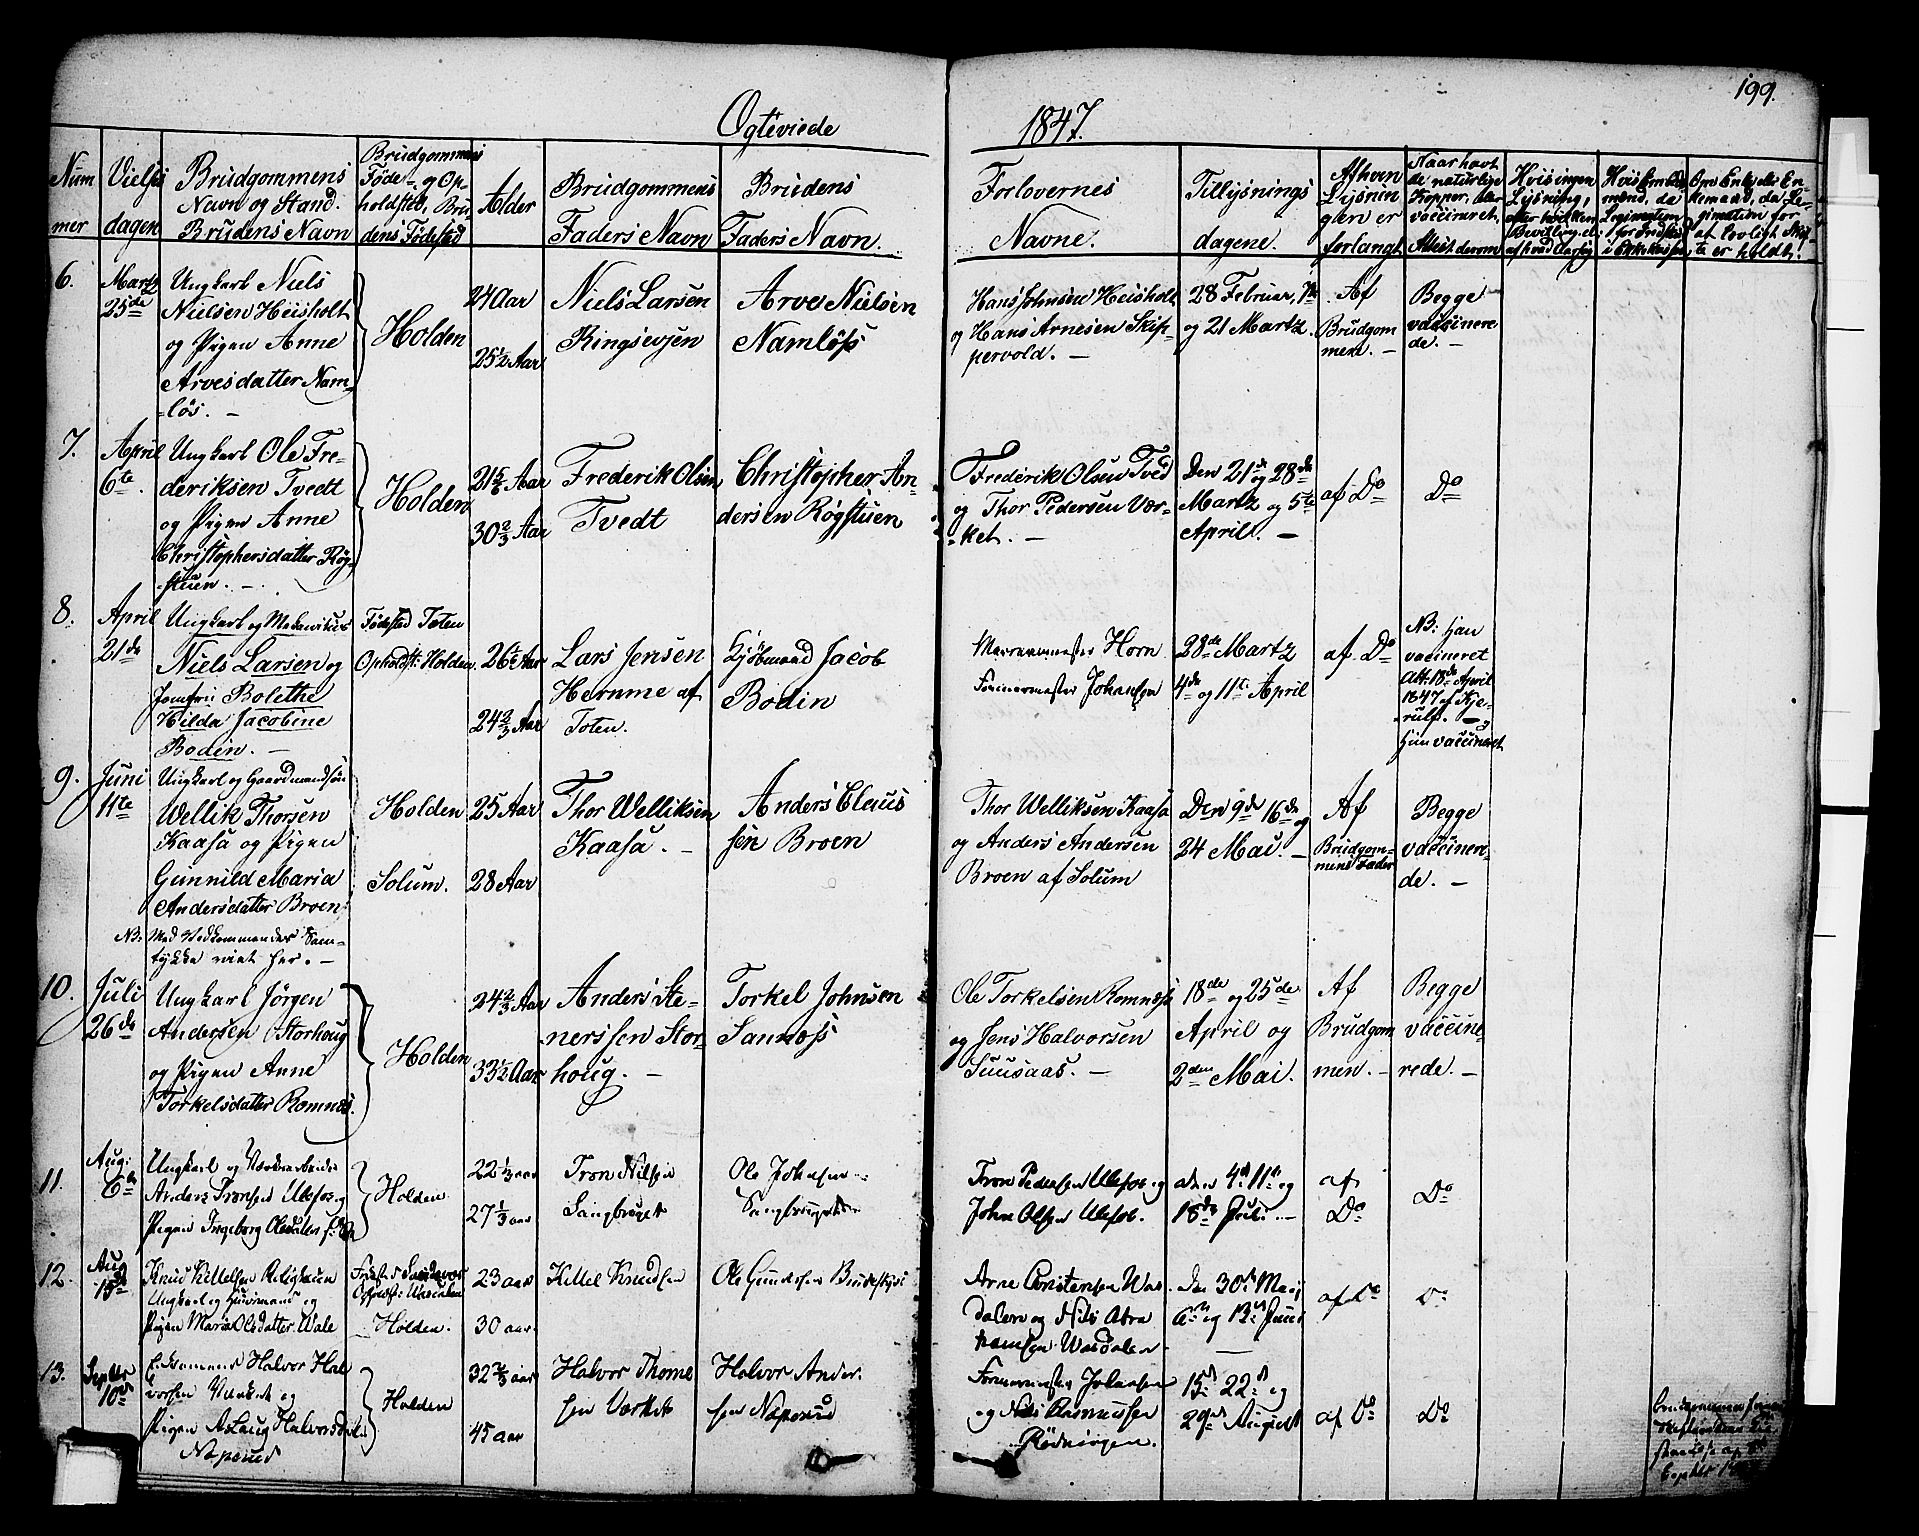 199.
Ogteviede 1847.
Num
mer
Vielses
dagen
Brudgommens
Navn og Stand.
Brudens Navn
Brudgommens
Føde- og Op-
holdsted, Bru
dens Fødested
Alder
Brudgommens
Faders Navn
Brudens
Faders Navn.
Forlovernes
Navne.
Tillysnings
dagene.
Af hvem
Lysnin
gen er
forlangt
Naar havt
de naturlige
Kopper, eller
vaccineret,
Attest derom
Hvis ingen
Lysning,
efter hvilken
Bevilling, el:
af hvad Aarsag
6.
Martz
25de
Ungkarl Niels
Nielsen Heisholt
og Pigen Anne
Arvesdatter Nam-
løs. —
Holden
24 Aar
25½ Aar
Niels Larsen
Ringsevjen
Arve Nielsen
Namløss
Hans Johnsen Heisholt
og Hans Arnesen Skip-
pervold. —
28 Februar, 7de
og 21 Martz.
Af
Brudgom
men. —
Begge
vaccinere
de. —
7.
April
6te
Ungkarl Ole Fre-
deriksen Tvedt
og Pigen Anne
Christophersdatter Røg-
stuen. —
Holden
21 5/6 Aar
30 2/3 Aar
Frederik Olsen
Tvedt
Christopher An-
dersen Røgstuen
Frederik Olsen Tved
og Thor Pedersen Vær-
ket. —
Den 21de og 28de
Martz og 5te
April. —
af Do
Do
8.
April
21de
Ungkarl og Mekanikus
Niels Larsen og
Jomfru Bolethe
Hilda Jacobine
Bodin. —
Fødested Toten
Opholdst: Holden.
26½ Aar
24 2/3 Aar
Lars Jensen
Hernme af
Toten.
Kjøbmand Jacob
Bodin
Horn
Formermester Johansen
28de Martz
4de og 11te April
af Do
NB: Han
vaccineret
Att: 18de April
1847 af Kje-
rulf. —
Hun vaccineret
9.
Juni
11te
Ungkarl og Gaardmandssøn
Wellik Thorsen
Kaasa og Pigen
Gunnild Maria
Andersdatter Broen
NB: Med Vedkommendes Sam-
tykke viet her. —
Holden
Solum.
25 Aar
28 Aar
Thor Welliksen
Kaasa. —
Anders Claus
sen Broen
Thor Welliksen Kaasa
og Anders Andersen
Broen af Solum
Den 9de 16de og
24 Mai. —
Af
Brudgom-
mens Fader
Begge
vaccinere-
de. —
10.
Juli
26de
Ungkarl Jörgen
Andersen Storhoug
og Pigen Anne
Torkelsdatter Romnes.
Holden
24 2/3 Aar
33½ Aar
Anders Ste-
nerssen Stor-
houg. —
Torkel Johnsen
Sannøss
Ole Torkelsen Romnøss
og Jens Halvorsen
Suusaas. —
18de og 25de
April og
2den Mai.
Af
Brudgom
men. —
Begge
vaccine-
rede. —
11.
Aug:
6te
Ungkarl og Værksarbeider
Anders Tronsen Ulefos og
Pigen Ingeborg Olsdatter
Holden
22 1/3 aar
27 1/3 aar
Tron Nilsen
Ole Johnsen
Tron Pedersen Ulefos og
John Olsen Ulefos.
den 4de 11te og
18de Juli. —
af
Do
Do
12
Aug
15de
Knud Kittelsen
Ungkarl og Huusmand og
Pigen Maria Olsdatter Wale
Holden.
23 aar
30 aar.
Kittel Knudsen
Ole Gundersen
Arne Christensen Was
dalen og Nils Abra
hamsen Wasdalen
den 30te Maj
6te og 13de Juni
af Do
Do
13.
Septbr
10de
Enkemand Halvor Hal
vorsen Værket og
Pigen Aslaug Halvorsdatter
Naperud
Holden
32 2/3 aar
45 aar
Halvor Thome
sen Værket
Halvor Ander.
sen Naperud
Formermester Johansen
og Nils Rasmussen
15de 22de og
29de August
af Do
Do